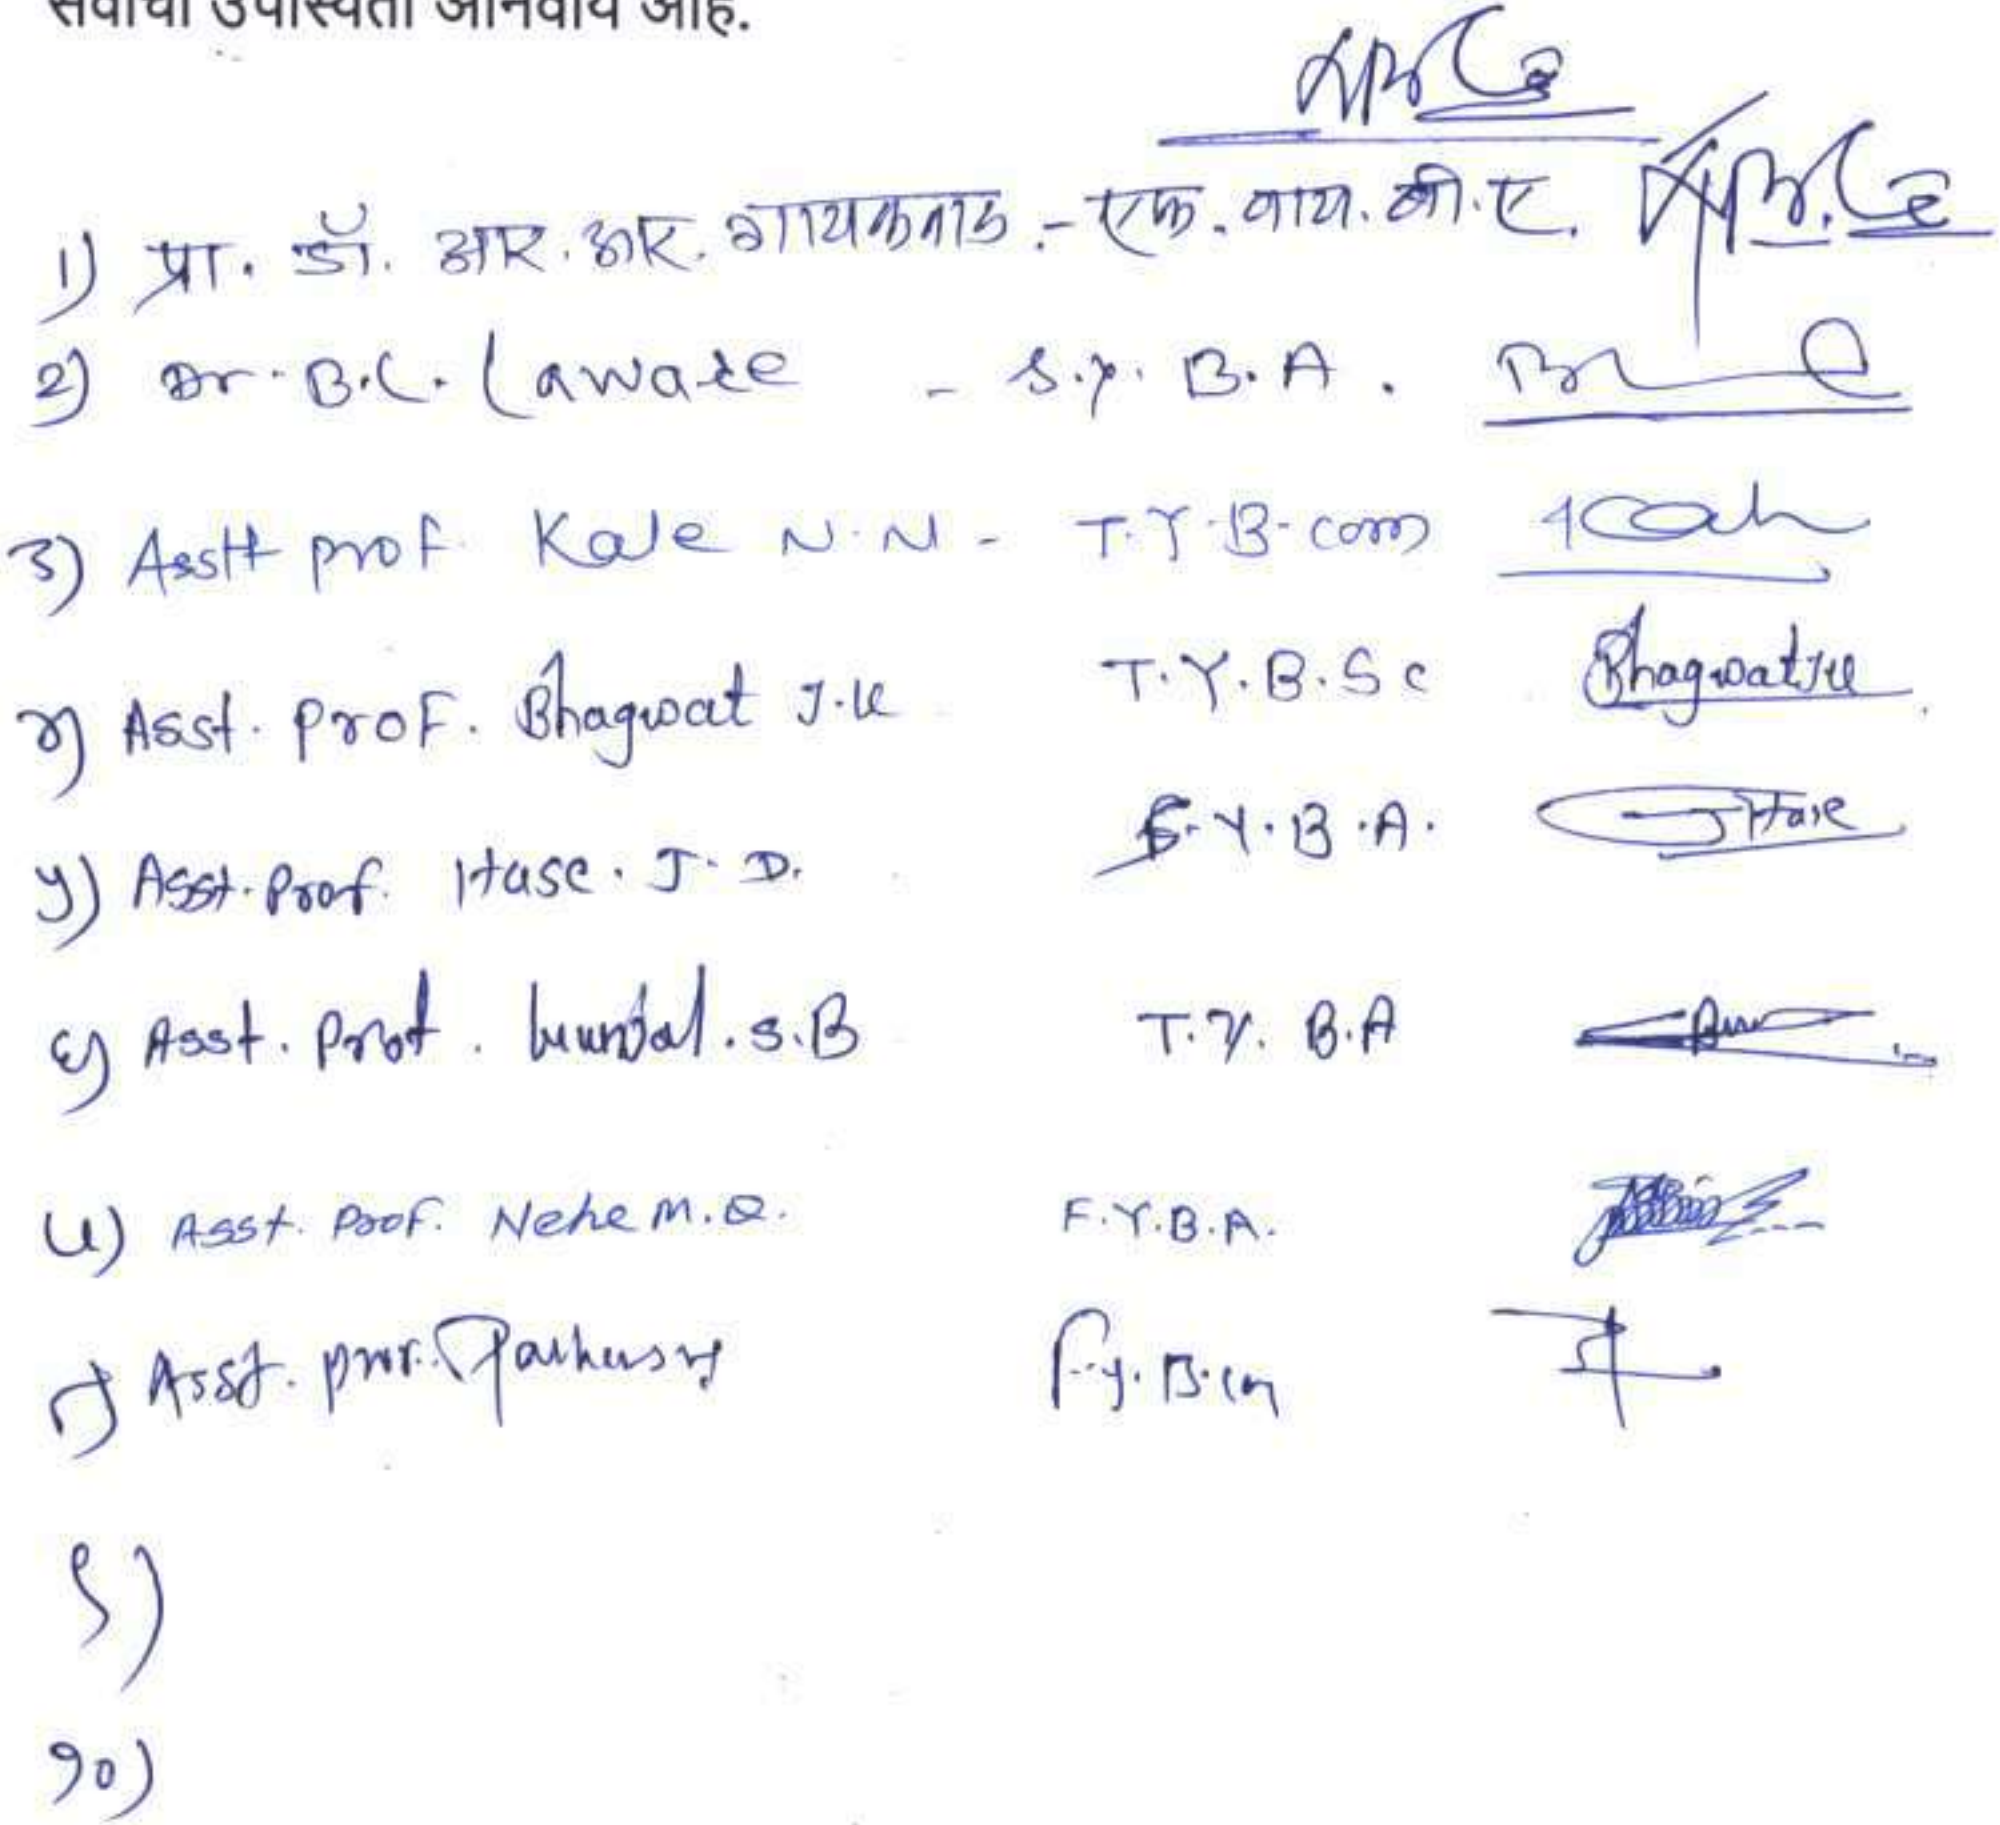 सर्वांची उपस्थिती अनिवार्य आहे.
1) प्रा. डॉ. आर. आर. गायकवाड - एफ. वाय. बी. ए.
2) Dr. B.C. Laware - S.Y. B.A.
3) Asstt prof. Kale N.N - T.Y.B-com
४) Asst. Prof. Bhagwat J.K T.Y.B.Sc Bhagwat JK
५) Asst. Prof. Hase. J. D. S.Y.B.A. JHase
६) Asst. Prof. S.B T.Y. B.A
७) Asst. Prof. Nehe M.R. F.Y.B.A.
८) Asst. prof. F.y. B.com
९)
१०)